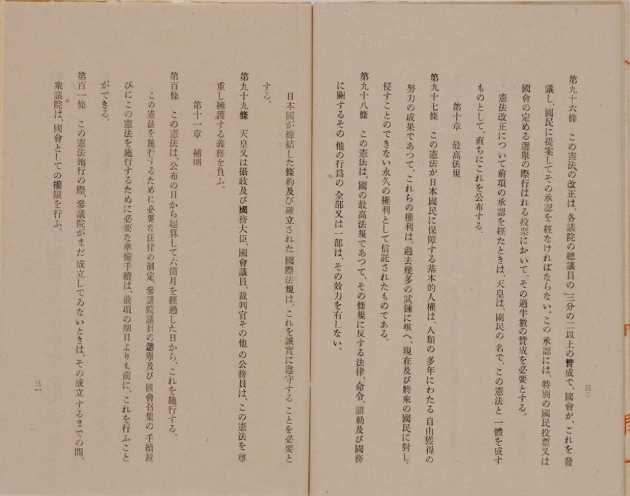 第九十六條　この憲法の改正は、各議院の總議員の三分の二以上の贊成で、國會が、これを發
議し、國民に提案してその承認を經なければならない。この承認には、特別の國民投票又は
國會の定める選擧の際行はれる投票において、その過半數の贊成を必要とする。
憲法改正について前項の承認を經たときは、天皇は、國民の名で、この憲法と一體を成す
ものとして、直ちにこれを公布する。
第十章　最高法規
第九十七條　この憲法が日本國民に保障する基本的人權は、人類の多年にわたる自由獲得の
努力の成果であつて、これらの權利は、過去幾多の試鍊に堪へ、現在及び將來の國民に對し、
侵すことのできない永久の權利として信託されたものである。
第九十八條　この憲法は、國の最高法規であつて、その條規に反する法律、命令、詔勅及び國務
に關するその他の行爲の全部又は一部は、その效力を有しない。
三〇
日本國が締結した條約及び確立された國際法規は、これを誠實に遵守することを必要と
する。
第九十九條　天皇又は攝政及び國務大臣、國會議員、裁判官その他の公務員は、この憲法を尊
重し擁護する義務を負ふ。
第十一章　補則
第百條　この憲法は、公布の日から起算して六箇月を經過した日から、これを施行する。
この憲法を施行するために必要な法律の制定、參議院議員の選擧及び國會召集の手續竝
びにこの憲法を施行するために必要な準備手續は、前項の期日よりも前に、これを行ふこと
ができる。
第百一條　この憲法施行の際、參議院がまだ成立してゐないときは、その成立するまでの間、
衆議院は、國會としての權限を行ふ。
三一